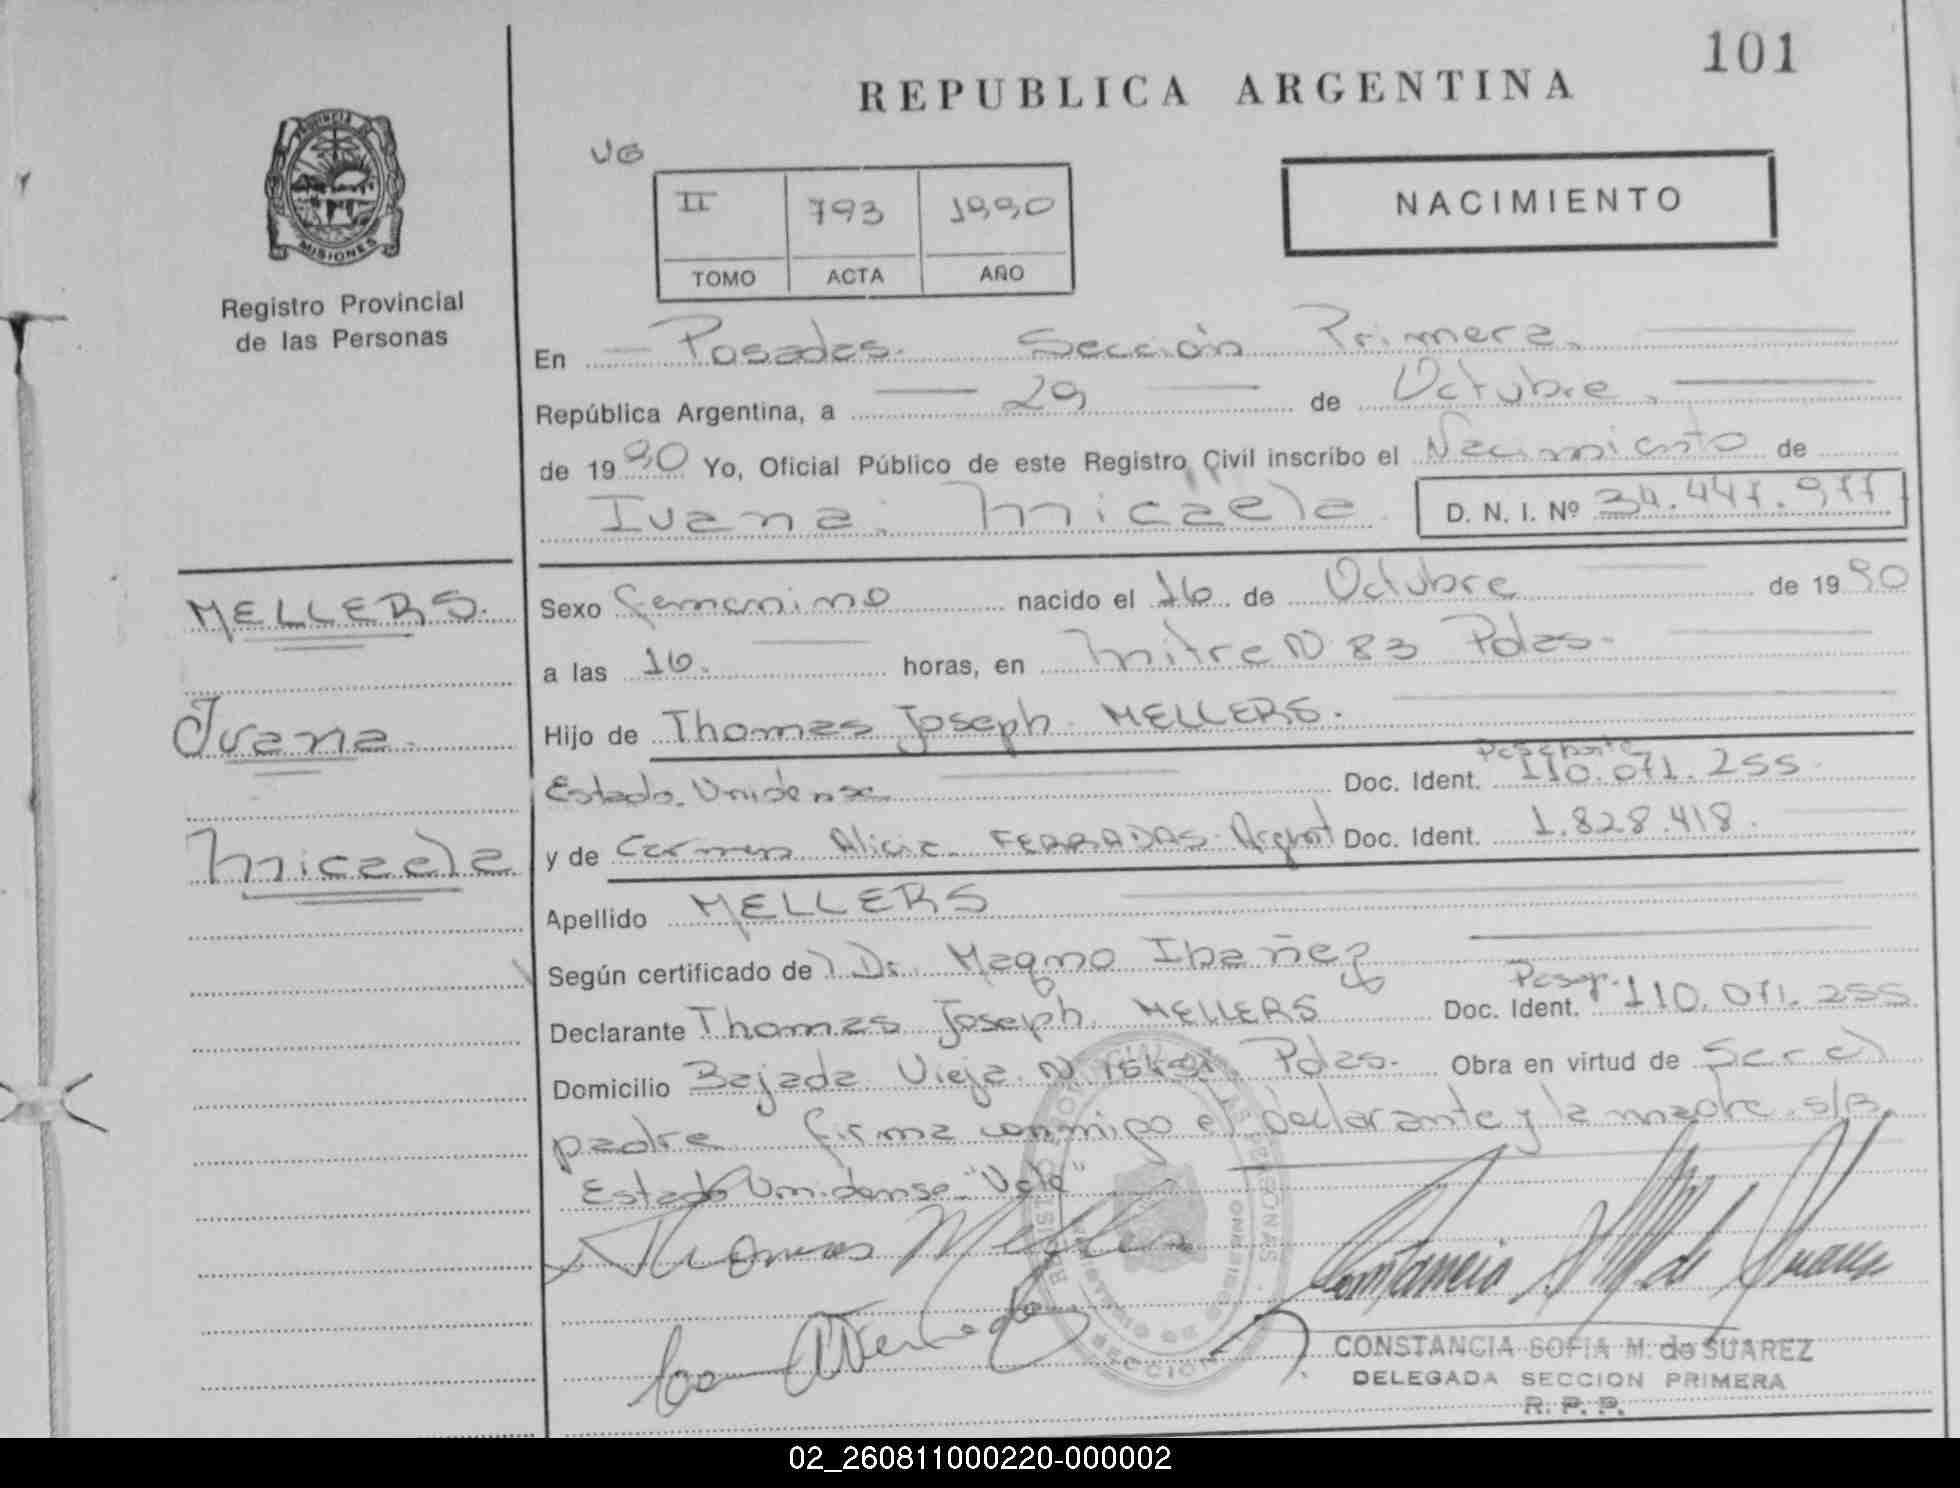 101
REPUBLICA ARGENTINA
PROVINCIA DE
MISIONES
Registro Provincial
de las Personas
VG
II 793 1990
TOMO ACTA AÑO
NACIMIENTO
En Posadas. Sección Primera.
República Argentina, a 29 de Octubre.
de 1990 Yo, Oficial Público de este Registro Civil inscribo el Nacimiento de
Ivana. Micaela D. N. I. Nº 34.447.977
MELLERS.
Ivana.
Micaela
Sexo femenino nacido el 16 de Octubre de 1990
a las 16. horas, en Mitre N 83 Pdas.
Hijo de Thomas Joseph. MELLERS.
Estado. Unidense Doc. Ident. Pasaporte 110.071.255
y de Carmen Alicia FERRADAS. Doc. Ident. 1.828.418.
Apellido MELLERS
Según certificado de Dr. Magno Ibañez
Declarante Thomas Joseph. MELLERS Doc. Ident. Pasap. 110.071.255
Domicilio Bajada Vieja N Pdas. Obra en virtud de Ser el
padre firma conmigo el declarante y la madre. s/r.
"Estado Unidense "Vale"
Thomas Mellers
CONSTANCIA SOFIA M. de SUAREZ
DELEGADA SECCION PRIMERA
R. P. P.
02_260811000220-000002